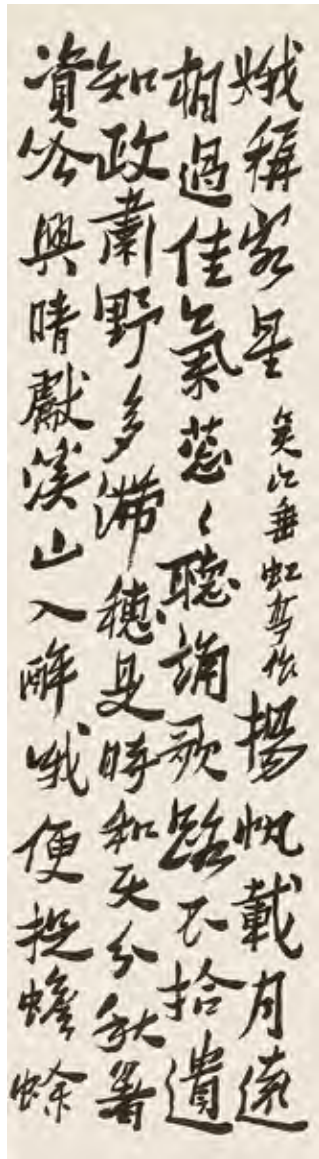 娥稱客星 吳江垂虹亭作 揚帆載月遠
相過佳氣蔥〻聽誦歌路不拾遺
知政肅野多滯穗是時和天分秋暑
資吟興晴獻溪山入醉哦便捉蟾蜍